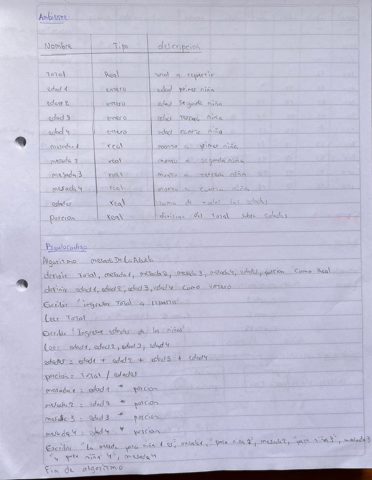 Ambiente
Nombre Tipo descripcion
Total Real total a repartir
edad 1 entero edad primer niña
edad 2 entero edad segunda niña
edad 3 entero edad tercera niña
edad 4 entero edad cuarta niña
mesada 1 real monto a primer niña
mesada 2 real monto a segunda niña
mesada 3 real monto a tercera niña
mesada 4 real monto a cuarta niña
edades real suma de todas las edades
porcion Real division del total sobre edades
Pseudocodigo
Algoritmo mesada De La Abuela
definir total, mesada1, mesada2, mesada3, mesada4, edades, porcion Como Real
definir edad1, edad2, edad3, edad4 como entero
Escribir "ingresar total a repartir"
Leer total
Escribir "Ingresar edades de las niñas"
Leer edad1, edad2, edad3, edad4
edades = edad1 + edad2 + edad3 + edad4
porcion = total / edades
mesada1 = edad1 * porcion
mesada2 = edad2 * porcion
mesada3 = edad3 * porcion
mesada4 = edad4 * porcion
Escribir "La mesada para niña 1 es", mesada1, "para niña 2", mesada2, "para niña 3", mesada3
"y para niña 4", mesada4
Fin de algoritmo